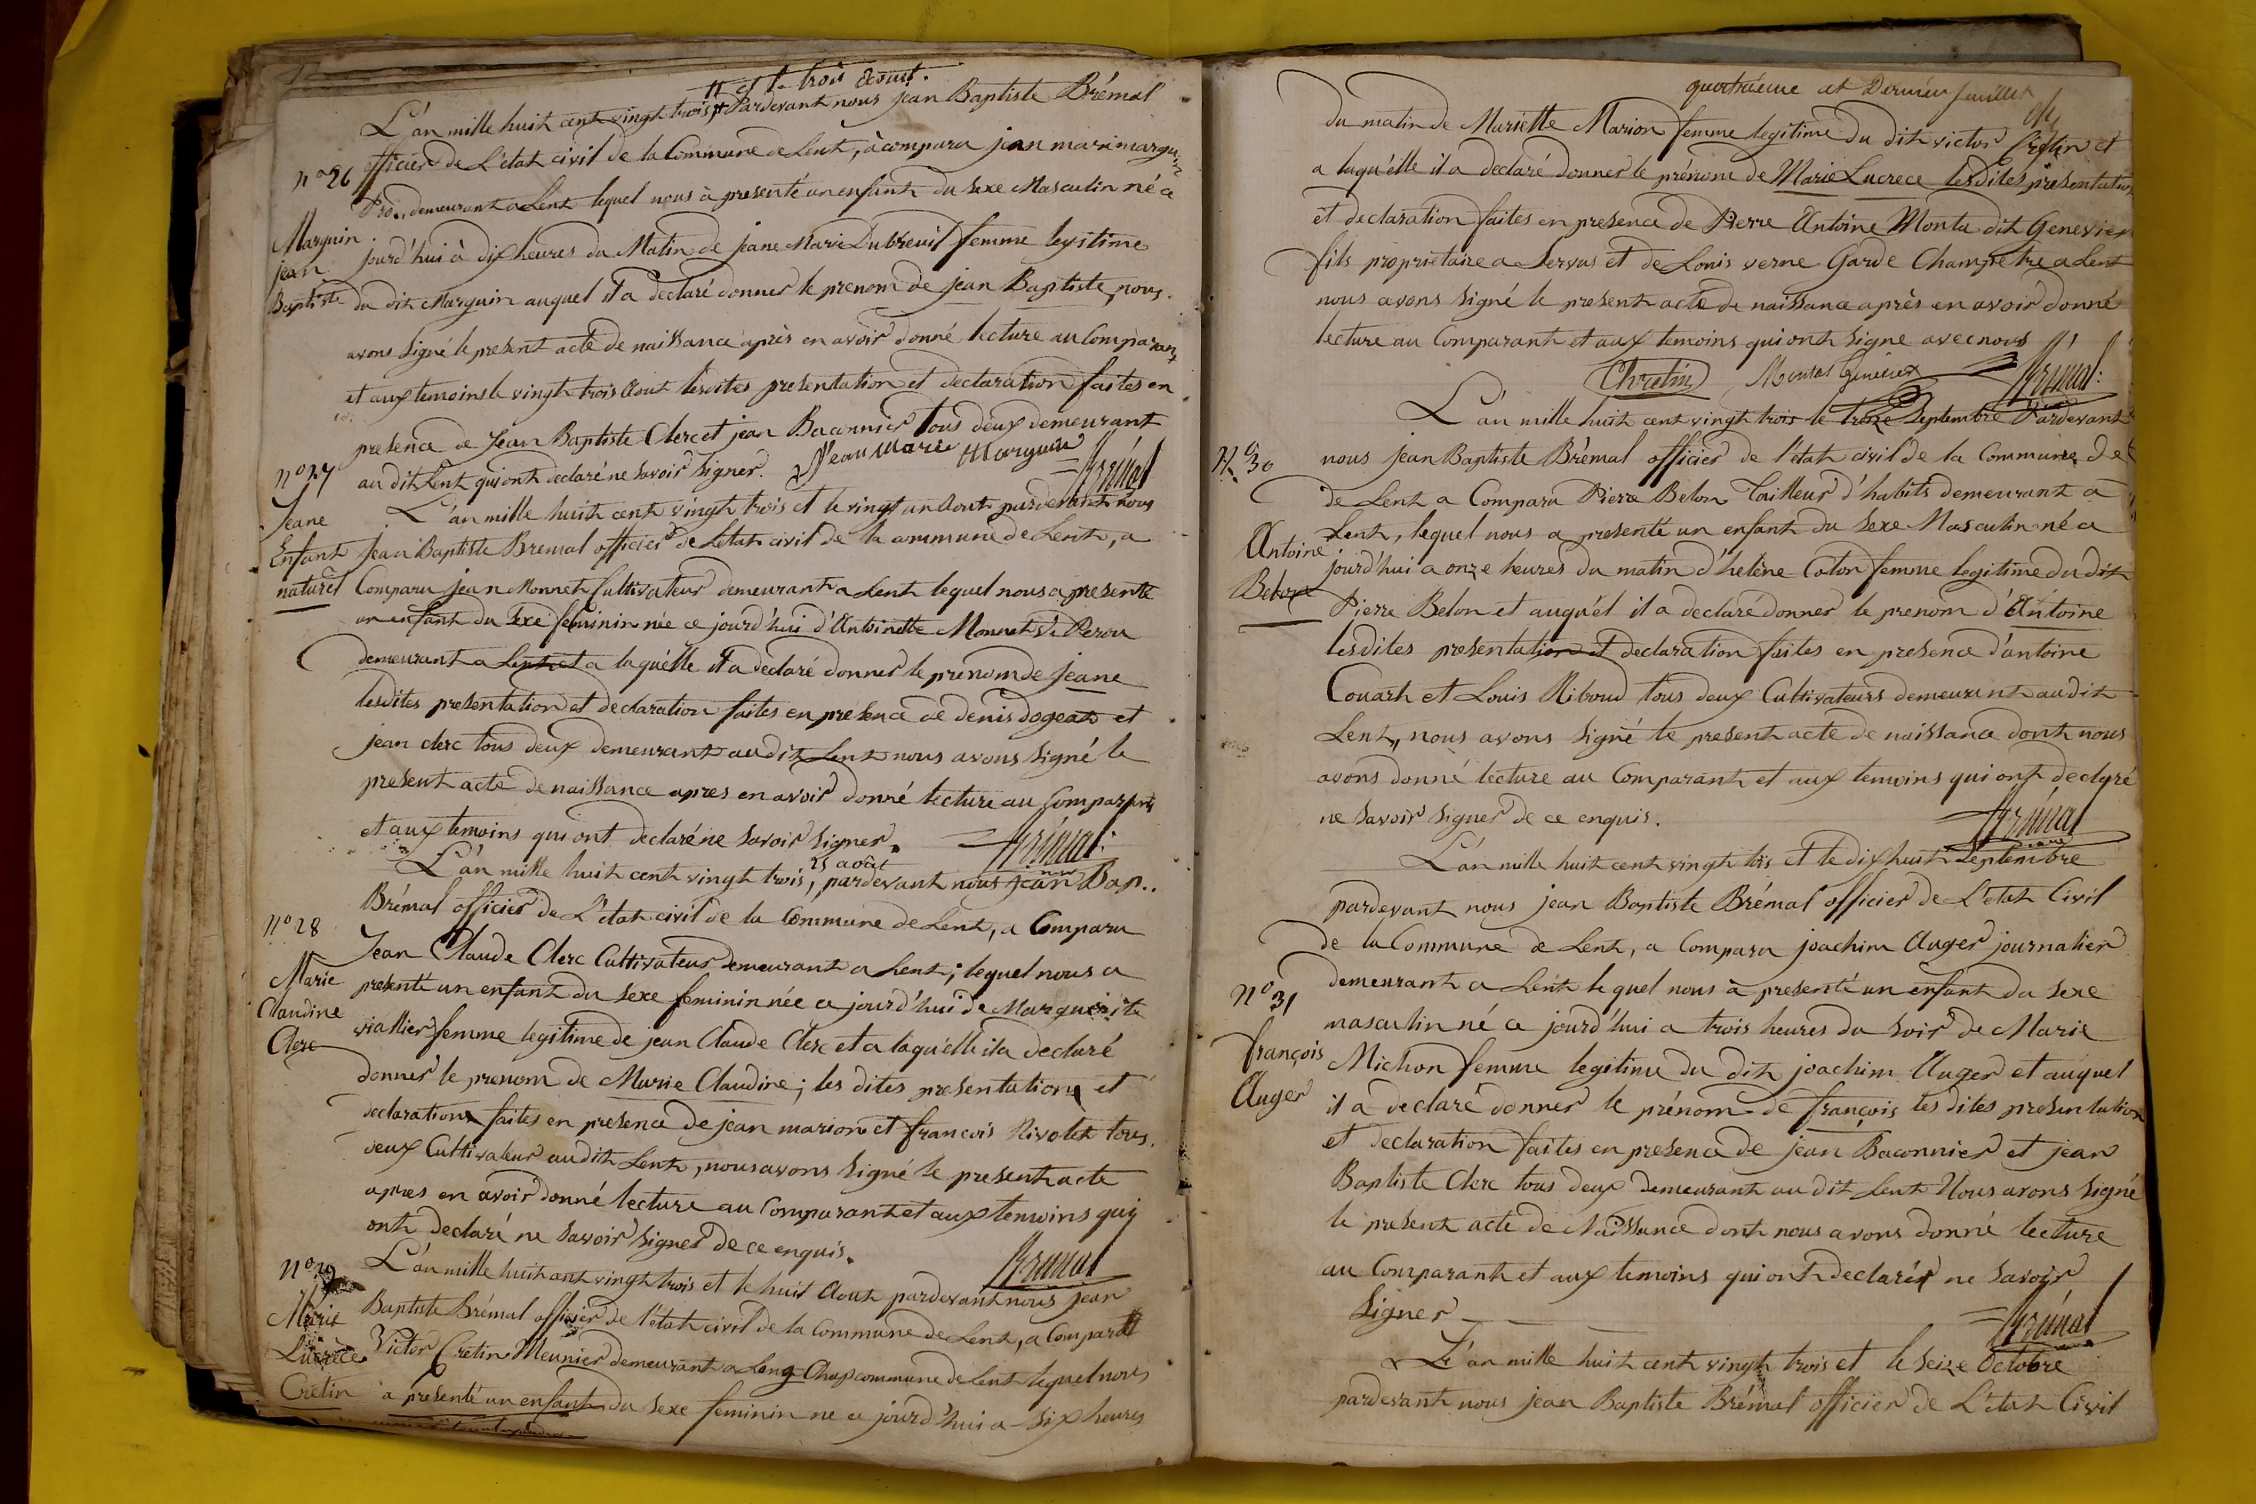 et le trois aout.
L'an mille huit cent vingt trois Pardevant nous jean Baptiste Brémal
n° 26
officier de L'état civil de la Commune de Lent, à comparu jean marie marguin
Pro.. demeurant a Lent lequel nous à presenté un enfant du sexe Masculin né ce
Marguin
jean
Baptiste
jourd'hui à dix heures du Matin de jeane Marie Dubreuil femme legitime
du dit Marguin auquel il a declaré donner le prenom de jean Baptiste, nous
avons signé le present acte de naissance après en avoir donné lecture au Comparant
et aux temoins le vingt trois Aout lesdites presentation et declaration faites en
presence de Jean Baptiste Clerc et jean Baconnier tous deux demeurant
au dit Lent qui ont declaré ne savoir signer. Jean Marie Marguin Brémal
n° 27
Jeane
Enfant
naturel
L'an mille huit cent vingt trois et le vingt un Aout pardevant nous
Jean Baptiste Bremal officier de L'etat civil de la commune de Lent, a
Comparu jean Monnet Cultivateur demeurant a Lent lequel nous a presenté
un enfant du sexe feminin née ce jourd'hui d'Antoinette Monnet Ve Perou
demeurant a Lent et a laquélle il a declaré donner le prenom de jeane
lesdites presentation et declaration faites en presence de denis dogeat et
jean clerc tous deux demeurant au dit Lent nous avons signé le
present acte de naissance apres en avoir donné lecture au Comparant
et aux temoins qui ont declaré ne savoir signer. Brémal
25 août
L'an mille huit cent vingt trois, pardevant nous Jean Bap..
n° 28
Brémal officier de L'état civil de la Commune de Lent, a Comparu
Jean Claude Clerc Cultivateur demeurant a Lent; lequel nous a
Marie
Claudine
Clerc
presenté un enfant du sexe feminin née ce jourd'hui de Marguerite
viallier femme legitime de jean Claude Clerc et a laquélle il a declaré
donner le prenom de Marie Claudine; les dites presentation et
declaration faites en presence de jean marion et francois Nivolet tous
deux Cultivateur au dit Lent, nous avons signé le present acte
apres en avoir donné lecture au Comparant et aux temoins qui
ont declaré ne savoir signer de ce enquis. Brémal
n° 29
Marie
Lucrèce
Cretin
L'an mille huit cent vingt trois et le huit Aout pardevant nous jean
Baptiste Brémal officier de l'état civil de la Commune de Lent, a Comparu
Victor Cretin Meunier demeurant a Long Champ commune de Lent lequel nous
a presenté un enfant du sexe feminin ne ce jourd'hui a six heures
quatriéme et Dernier feuillet
du matin de Mariette Marion femme legitime du dit victor Cretin et
a laquélle il a declaré donner le prénom de Marie Lucrece lesdites presentation
et declaration faites en presence de Pierre Antoine Monta dit Genevier
fils proprietaire a Servas et de Louis verne Garde Champetre a Lent
nous avons signé le present acte de naissance après en avoir donné
lecture au Comparant et aux temoins qui ont signe avec nous
Chretin Brémal
N° 30
L'an mille huit cent vingt trois le treize Septembre Pardevant
nous jean Baptiste Brémal officier de l'état civil de la Commune de
de Lent a Comparu Pierre Belon Tailleur d'habits demeurant a
Lent, lequel nous a presenté un enfant du sexe Masculin né ce
Antoine
Belon
jourd'hui a onze heures du matin d'helène Coton femme legitime du dit
Pierre Belon et auquél il a declaré donner le prenom d'Antoine
lesdites presentation et declaration faites en presence d'antoine
Couart et Louis Riboud tous deux Cultivateurs demeurant au dit
Lent, nous avons signé le present acte de naissance dont nous
avons donné lecture au Comparant et aux temoins qui ont declaré
ne savoir signer de ce enquis. Brémal
L'an mille huit cent vingt tois et le dix huit Septembre
pardevant nous jean Baptiste Brémal officier de L'etat Civil
de la Commune de Lent, a Comparu joachim Auger journalier
n° 31
françois
Auger
demeurant a Lent lequel nous à presenté un enfant du sexe
masculin né ce jourd'hui a trois heures du soir de Marie
Michon femme legitime du dit joachim Auger et auquel
il a declaré donner le prénom de françois les dites presentation
et declaration faites en presence de jean Baconnier et jean
Baptiste Clerc tous deux demeurant au dit Lent Nous avons signé
le present acte de Naissance dont nous avons donné lecture
au Comparant et aux temoins qui ont declaré ne savoir
signer Brémal
L'an mille huit cent vingt trois et le seize Octobre
pardevant nous jean Baptiste Brémal officier de L'etat Civil